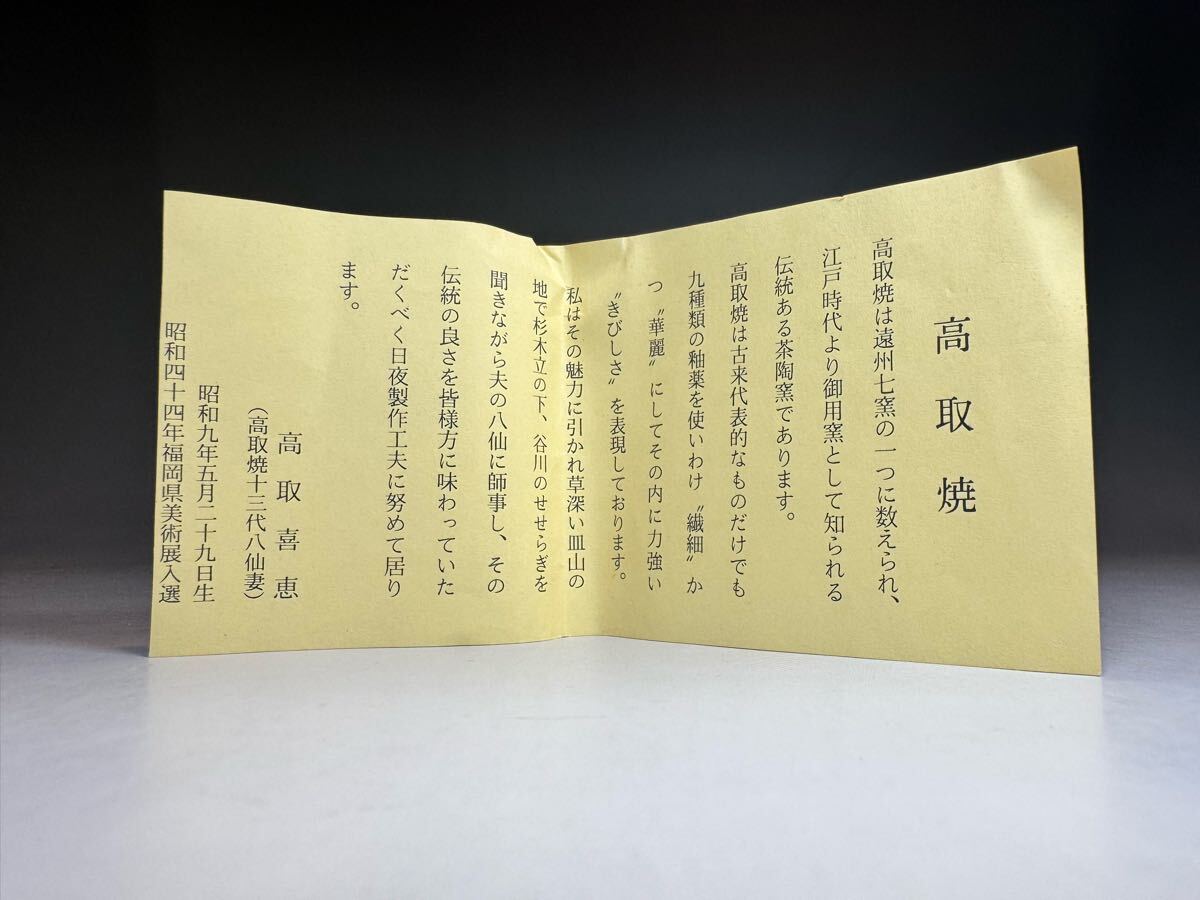 高取焼
高取焼は遠州七窯の一つに数えられ、
江戸時代より御用窯として知られる
伝統ある茶陶窯であります。
高取焼は古来代表的なものだけでも
九種類の釉薬を使いわけ〝繊細〟か
つ〝華麗〟にしてその内に力強い
〝きびしさ〟を表現しております。
私はその魅力に引かれ草深い皿山の
地で杉木立の下、谷川のせせらぎを
聞きながら夫の八仙に師事し、その
伝統の良さを皆様方に味わっていた
だくべく日夜製作工夫に努めて居り
ます。
高取喜恵
（高取焼十三代八仙妻）
昭和九年五月二十九日生
昭和四十四年福岡県美術展入選